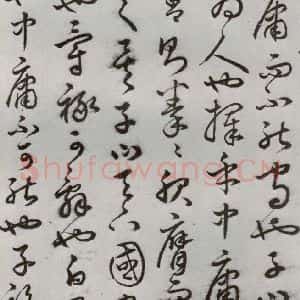 庸而不能守也子
為人也擇乎中庸
善則拳〻服膺而
之矣子曰天下國
也爵祿可辭也白
中庸不可能也子路
Shufawang.cn